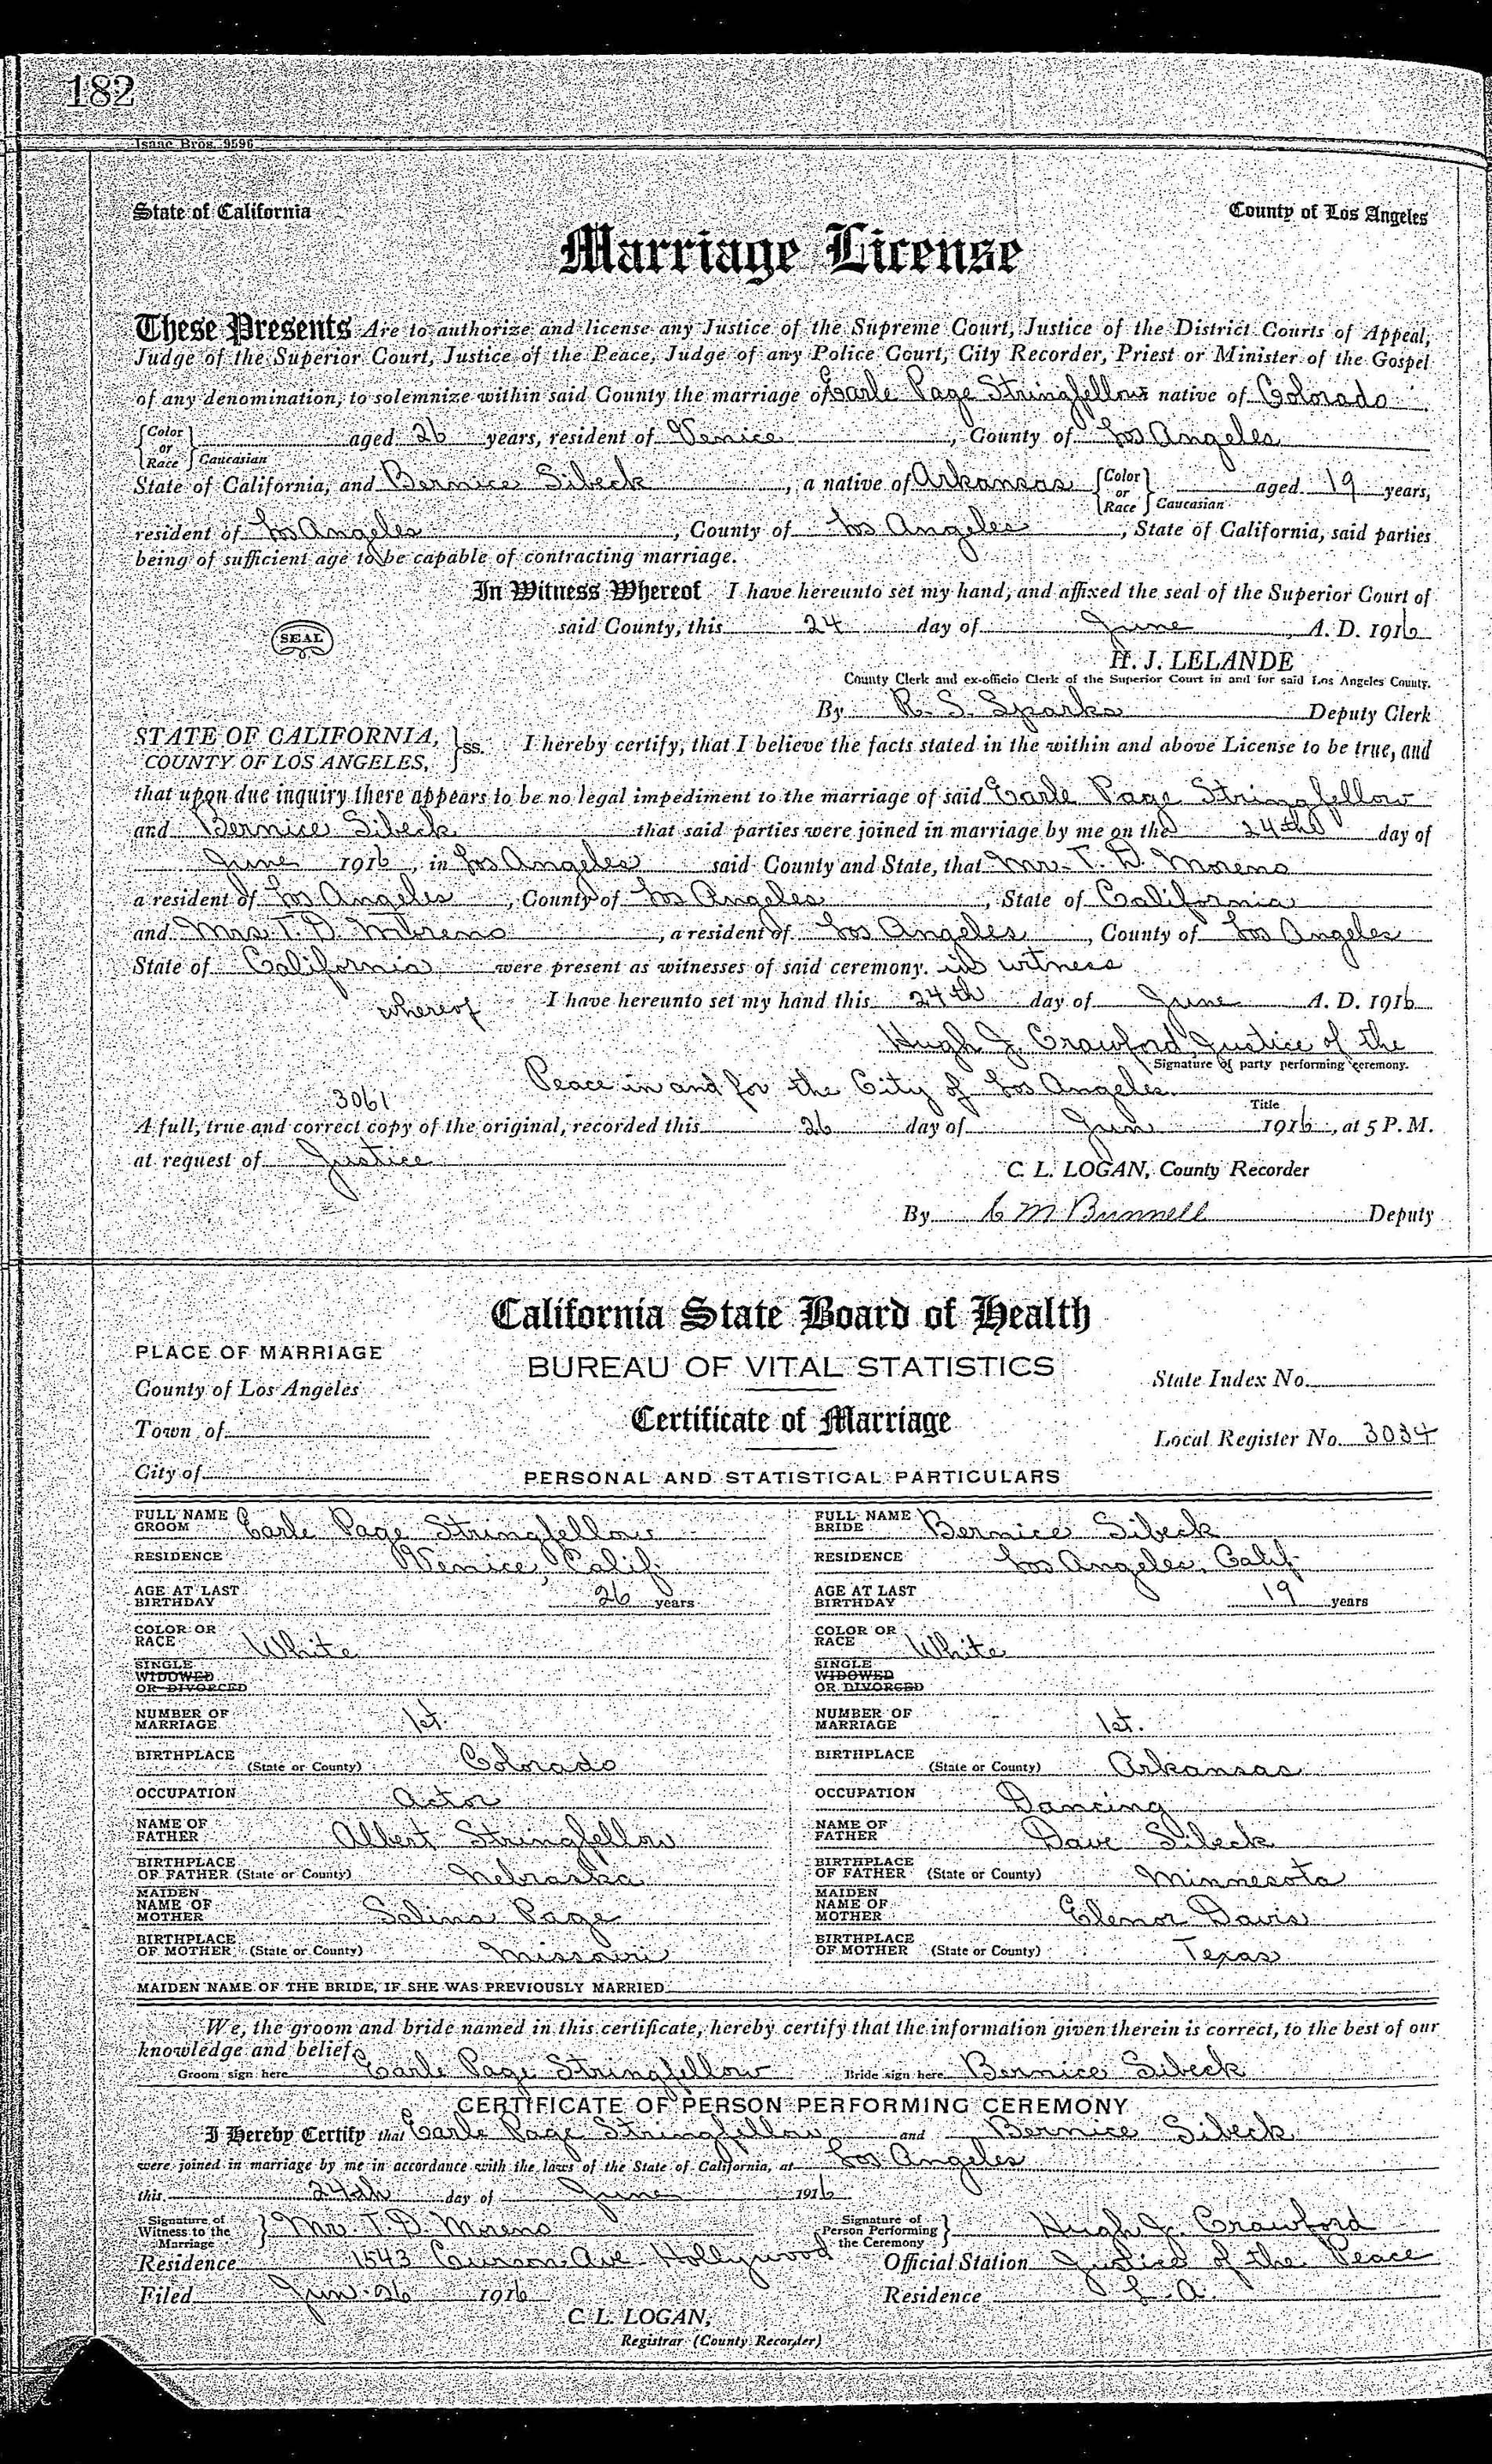 182
Isaac Bros. 9596
State of California County of Los Angeles
Marriage License
These Presents Are to authorize and license any Justice of the Supreme Court, Justice of the District Courts of Appeal,
Judge of the Superior Court, Justice of the Peace, Judge of any Police Court, City Recorder, Priest or Minister of the Gospel
of any denomination, to solemnize within said County the marriage of Earle Page Stringfellow native of Colorado
{Color or Race} Caucasian aged 26 years, resident of Venice, County of Los Angeles
State of California, and Bernice Sibeck, a native of Arkansas {Color or Race} Caucasian aged 19 years,
resident of Los Angeles, County of Los Angeles, State of California, said parties
being of sufficient age to be capable of contracting marriage.
In Witness Whereof I have hereunto set my hand, and affixed the seal of the Superior Court of
SEAL said County, this 24 day of June A. D. 1916
H. J. LELANDE
County Clerk and ex-officio Clerk of the Superior Court in and for said Los Angeles County.
By R. S. Sparks Deputy Clerk
STATE OF CALIFORNIA, COUNTY OF LOS ANGELES, }ss. I hereby certify, that I believe the facts stated in the within and above License to be true, and
that upon due inquiry there appears to be no legal impediment to the marriage of said Earle Page Stringfellow
and Bernice Sibeck that said parties were joined in marriage by me on the 24th day of
June 1916, in Los Angeles said County and State, that Mr. T. D. Moreno
a resident of Los Angeles, County of Los Angeles, State of California
and Mrs. T. D. Moreno, a resident of Los Angeles, County of Los Angeles
State of California were present as witnesses of said ceremony. in witness
whereof I have hereunto set my hand this 24th day of June A. D. 1916
Hugh J. Crawford, Justice of the
Signature of party performing ceremony.
Peace in and for the City of Los Angeles
Title
3061
A full, true and correct copy of the original, recorded this 26 day of Jun 1916, at 5 P. M.
at request of Justice
C. L. LOGAN, County Recorder
By C M Bunnell Deputy
California State Board of Health
PLACE OF MARRIAGE
BUREAU OF VITAL STATISTICS
County of Los Angeles State Index No.
Certificate of Marriage
Town of
Local Register No. 3034
City of
PERSONAL AND STATISTICAL PARTICULARS
FULL NAME GROOM Earle Page Stringfellow FULL NAME BRIDE Bernice Sibeck
RESIDENCE Venice, Calif. RESIDENCE Los Angeles, Calif.
AGE AT LAST BIRTHDAY 26 years AGE AT LAST BIRTHDAY 19 years
COLOR OR RACE White COLOR OR RACE White
SINGLE WIDOWED OR DIVORCED SINGLE WIDOWED OR DIVORCED
NUMBER OF MARRIAGE 1st. NUMBER OF MARRIAGE 1st.
BIRTHPLACE (State or County) Colorado BIRTHPLACE (State or County) Arkansas
OCCUPATION Actor OCCUPATION Dancing
NAME OF FATHER Albert Stringfellow NAME OF FATHER Dave Sibeck
BIRTHPLACE OF FATHER (State or County) Nebraska BIRTHPLACE OF FATHER (State or County) Minnesota
MAIDEN NAME OF MOTHER Salina Page MAIDEN NAME OF MOTHER Elenor Davis
BIRTHPLACE OF MOTHER (State or County) Missouri BIRTHPLACE OF MOTHER (State or County) Texas
MAIDEN NAME OF THE BRIDE, IF SHE WAS PREVIOUSLY MARRIED
We, the groom and bride named in this certificate, hereby certify that the information given therein is correct, to the best of our
knowledge and belief.
Groom sign here Earle Page Stringfellow Bride sign here Bernice Sibeck
CERTIFICATE OF PERSON PERFORMING CEREMONY
I Hereby Certify that Earle Page Stringfellow and Bernice Sibeck
were joined in marriage by me in accordance with the laws of the State of California, at Los Angeles
this 24th day of June 1916
Signature of Witness to the Marriage } Mr. T. D. Moreno Signature of Person Performing the Ceremony } Hugh J. Crawford
Residence 1543 Curson Ave Hollywood Official Station Justice of the Peace
Filed Jun 26 1916 Residence L. A.
C. L. LOGAN,
Registrar (County Recorder)